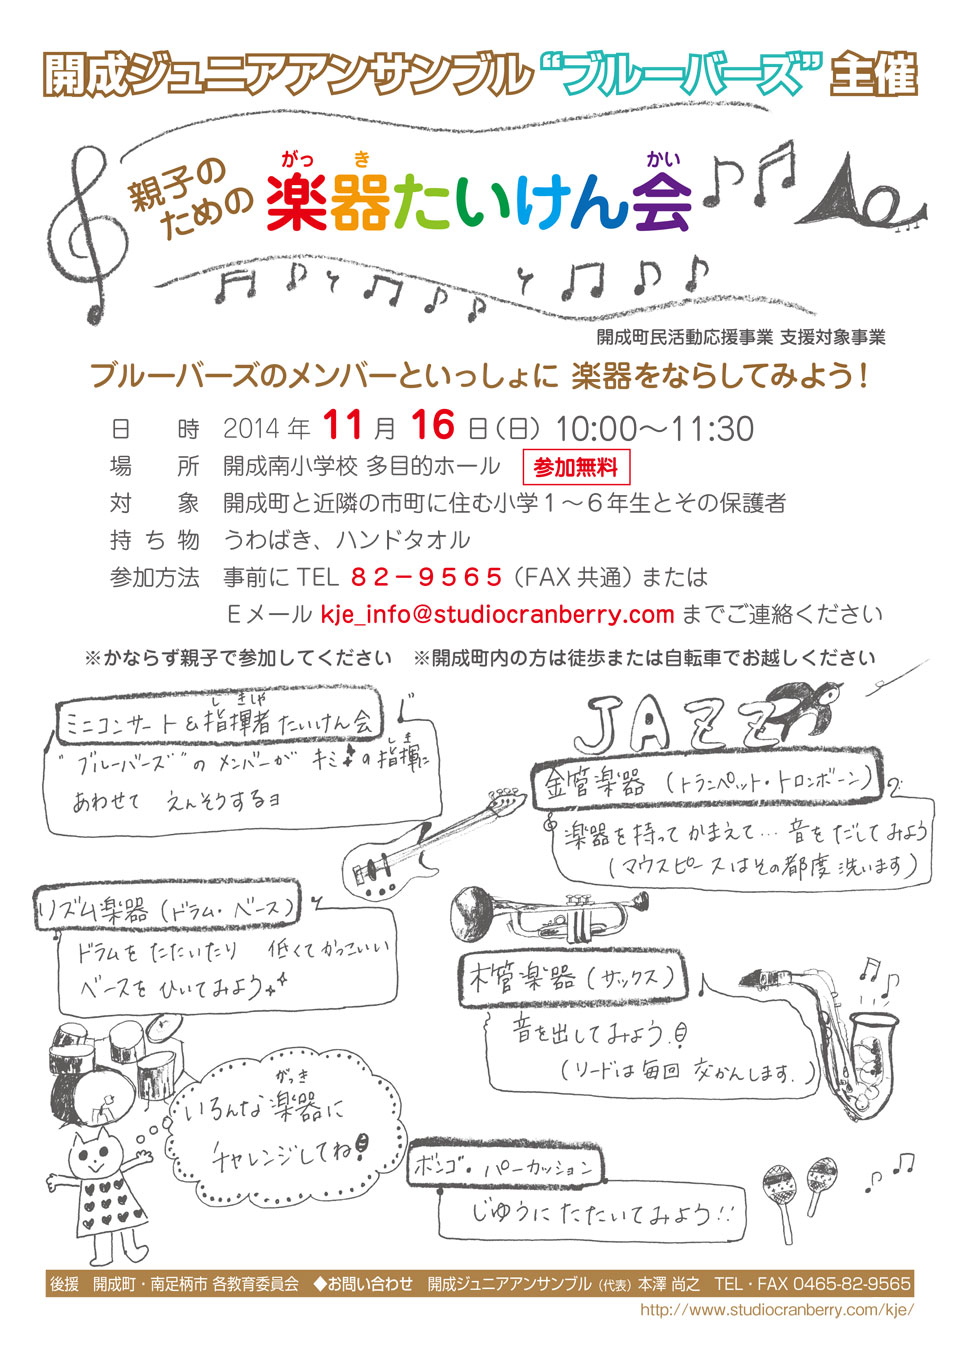 開成ジュニアアンサンブル “ブルーバーズ” 主催
親子のための
がっ き かい
楽器たいけん会
開成町民活動応援事業 支援対象事業
ブルーバーズのメンバーといっしょに 楽器をならしてみよう！
日時 2014年 11月 16日（日） 10:00～11:30
場所 開成南小学校 多目的ホール 参加無料
対象 開成町と近隣の市町に住む小学１～６年生とその保護者
持ち物 うわばき、ハンドタオル
参加方法 事前にTEL ８２－９５６５（FAX共通）または
Ｅメール kje_info@studiocranberry.com までご連絡ください
※かならず親子で参加してください ※開成町内の方は徒歩または自転車でお越しください
しきしゃ
ミニコンサート＆指揮者たいけん会
しき
“ブルーバーズ”の メンバーが キミの指揮に
あわせて えんそうするヨ
JAZZ
金管楽器（トランペット・トロンボーン）
楽器を持って かまえて… 音を だしてみよう
（マウスピースはその都度 洗います）
リズム楽器（ドラム・ベース）
ドラムを たたいたり 低くてかっこいい
ベースを ひいてみよう
木管楽器（サックス）
音を出してみよう!
（リードは 毎回 交かんします.）
がっき
いろんな楽器に
チャレンジしてね!
ボンゴ・パーカッション
じゆうに たたいてみよう!!
後援 開成町・南足柄市 各教育委員会 ◆お問い合わせ 開成ジュニアアンサンブル（代表）本澤 尚之 TEL・FAX 0465-82-9565
http://www.studiocranberry.com/kje/